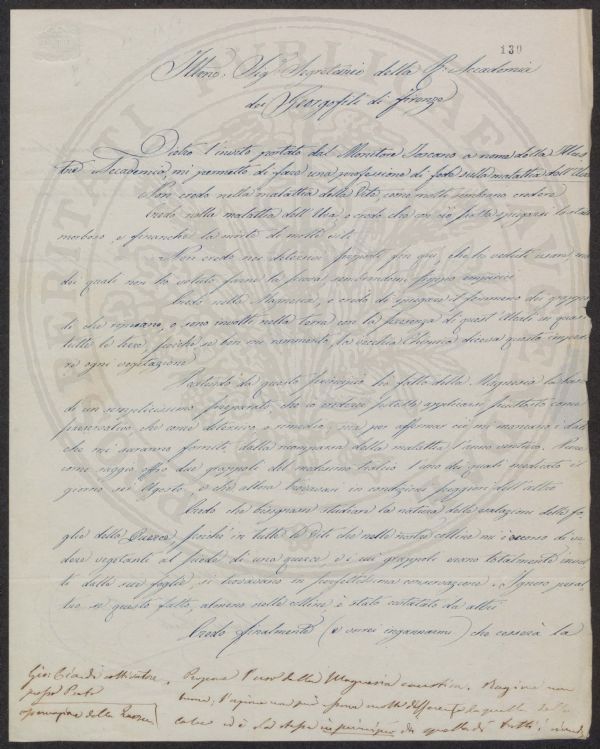 139
Illmo. Sigr. Segretario della R. Accademia
dei Georgofili di Firenze
Dietro l'invito portato dal Monitore Toscano a nome della Illus
tre Accademia, mi permetto di fare una professione di fede sulla malattia dell'Uva
Non credo nella malattia della Vite, come molti sembrano credere
Credo nella malattia dell'Uva, e credo che con ciò possa spiegarsi lo stato
morboso, e finanche la morte di molte viti.
Non credo nei detersivi proposti fin qui, che ho veduti usare, uno
dei quali non ho voluto farne la prova, sembrandomi
Credo nella Magnesia, e credo di spiegare il fenomeno dei grappo
li che riposano, o sono involti nella terra con la presenza di quest'Alcali in quasi
tutte le terre, poichè se ben mi rammento, la vecchia Chimica diceva questo
re ogni vegetazione
Partendo da questo principio ho fatto della Magnesia la base
di un semplicissimo preparato che io credevo potesse applicarsi piuttosto come
preservativo che come detersivo o rimedio, ma per affermar ciò mi mancano i dati
che mi saranno forniti dalla ricomparsa della malattia l'anno venturo.
come saggio offro due grappoli del medesimo tralcio l'uno dei quali medicato il
giorno sei Agosto, e che allora trovavasi in condizioni peggiori dell'altro
Credo che bisognasse studiare la natura delle esalazioni delle fo
glie della Querce, poichè in tutte le Viti che nelle nostre colline mi è occorso di ve
dere vegetanti al piede di una querce e i cui grappoli erano totalmente involti
dalle sue foglie, si trovavano in perfettissima conservazione. Ignoro peral
tro se questo fatto, almeno nelle colline, è stato constatato da altri
Credo finalmente (e vorrei ingannarmi) che cesserà la
Gio: Ciardi coltivatore
presso Prato
Propone l'uso della Magnesia caustica. Ragione non
buona; l'opinione